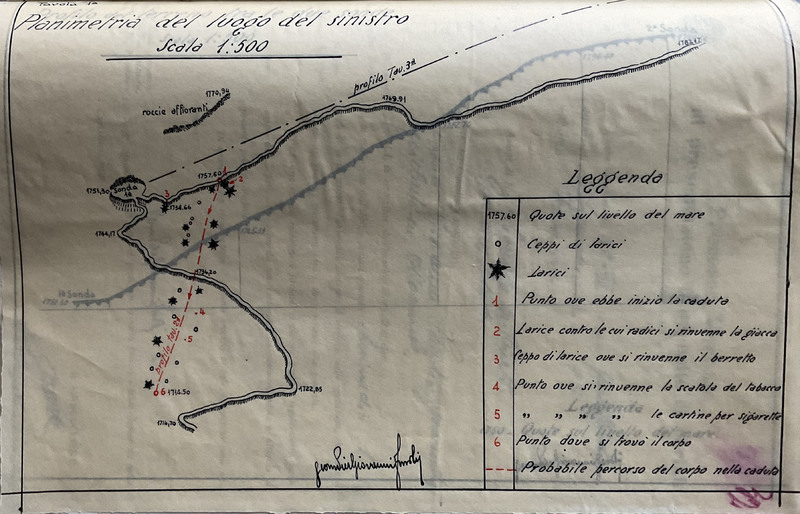 Tavola 1ª
Planimetria del luogo del sinistro
Scala 1:500
profilo Tav. 3ª
2ª Sonda
1782,17
1770,34
roccie affioranti
1769,91
1757.60
1
2
3
1751,50
Sonda
1ª
1754.66
1744,17
1734.20
1ª Sonda
4
5
profilo Tav. 2ª
6
1716.50
1722,85
1714,70
Leggenda
1757.60 Quote sul livello del mare
Ceppi di larici
Larici
1 Punto ove ebbe inizio la caduta
2 Larice contro le cui radici si rinvenne la giacca
3 Ceppo di larice ove si rinvenne il berretto
4 Punto ove si rinvenne la scatola del tabacco
5 " " " " le cartine per sigarette
6 Punto dove si trovò il corpo
Probabile percorso del corpo nella caduta
Leggenda
Quote sul livello del mare